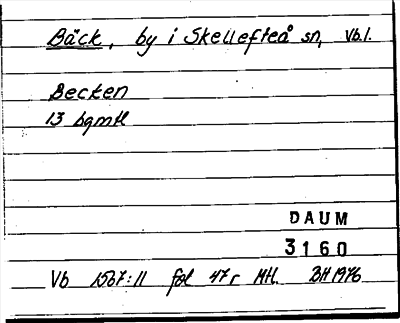 Bäck, by i Skellefteå sn, Vb.l.
Becken
13 bgmtl
DAUM
3160
Vb 1567:11 fol 47r MH. BH 1976